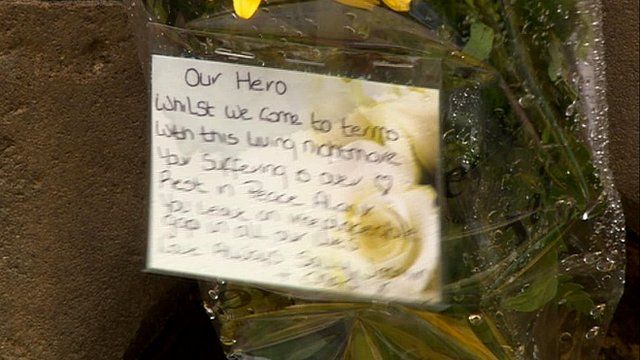 Our Hero
Whilst we come to terms
with this living nightmare
Your Suffering is over ♡
Rest in Peace
You Leave an irreplaceable
gap in all our lives
Love Always